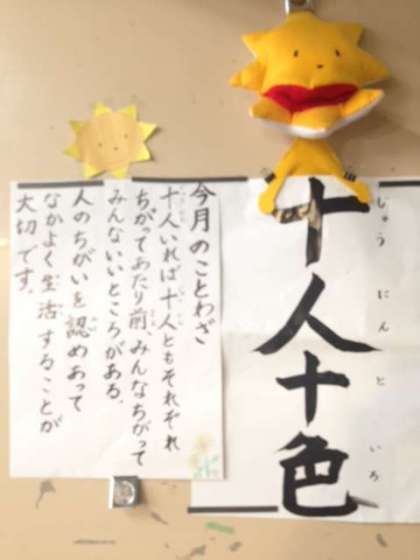 十人十色
じゅうにんといろ
今月のことわざ
十人いれば十人ともそれぞれ
ちがってあたり前みんなちがって
みんないいところがある。
人のちがいを認めあって
なかよく生活することが
大切です。